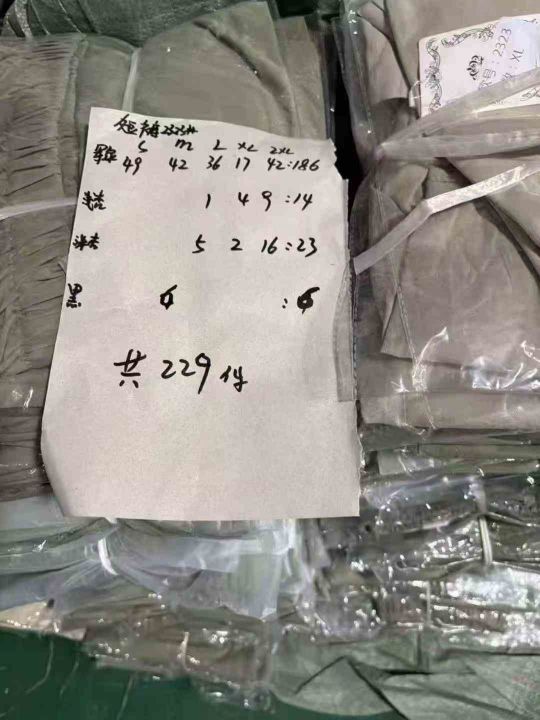 短 2323#
S M L XL 2XL
49 42 36 17 42:186
1 4 9 :14
5 2 16:23
黑 6 :6
共 229 件
号: 2323
XL